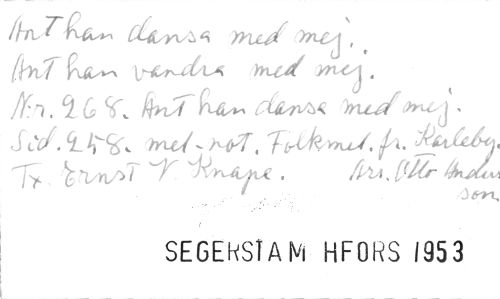 Ant han dansa med mej.
Ant han vandra med mej.
N:r. 268. Ant han dansa med mej.
Sid. 258. mel-not. Folkmel. fr. Karleby.
Tx. Ernst V. Knape. Arr. Otto Anders
son.
SEGERSTAM HFORS 1953